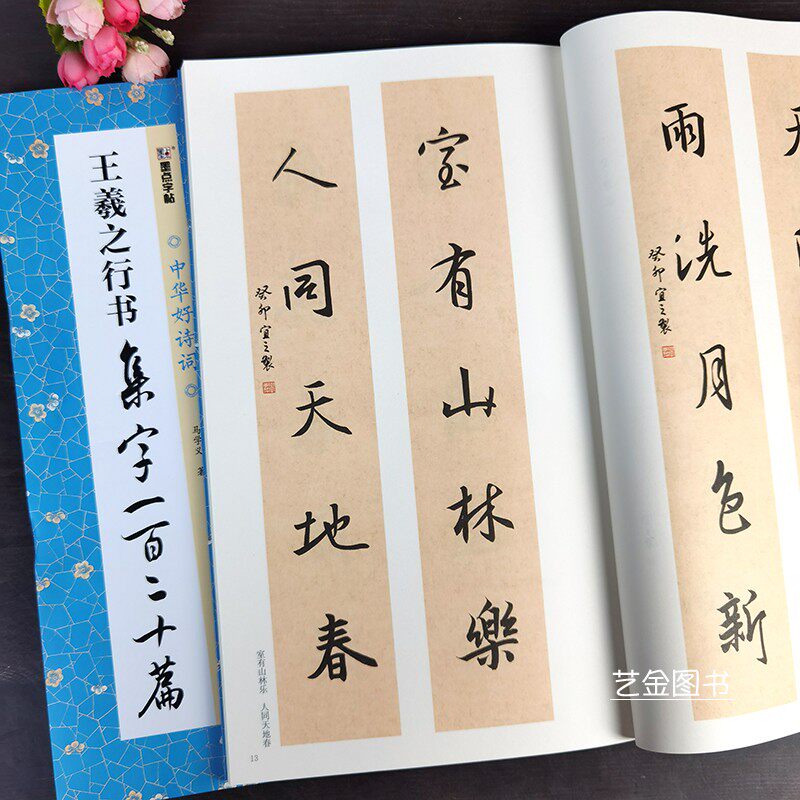 墨点字帖
中华好诗词
王羲之行书
集字一百二十篇
马学义 著
室有山林樂
人同天地春
癸卯宜之製
室有山林乐 人同天地春
13
雨洗月色新
癸卯宜之製
艺金图书